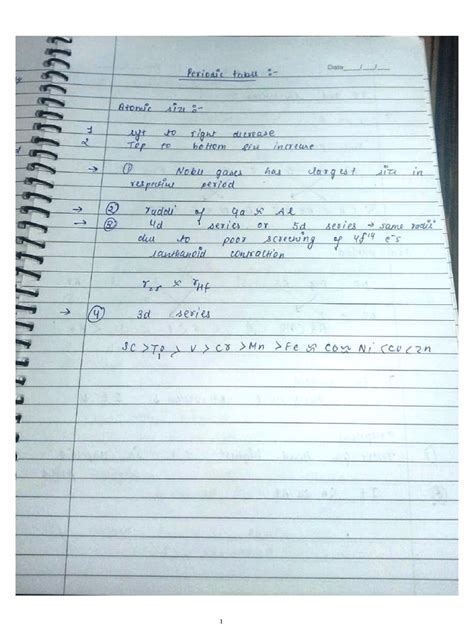 Date __/__/__
Periodic table :-
Atomic size :-
1 left to right decrease
2 Top to bottom size increase
→ ① Noble gases has largest size in
respective period
→ ② raddi of Ga ≈ Al
→ ③ 4d series or 5d series → same radii
due to poor screening of 4f14 e-s
lanthanoid contraction
rZr ≈ rHf
→ ④ 3d series
SC > Ti > V > Cr > Mn > Fe ≈ CO ≈ Ni < CU < Zn
1